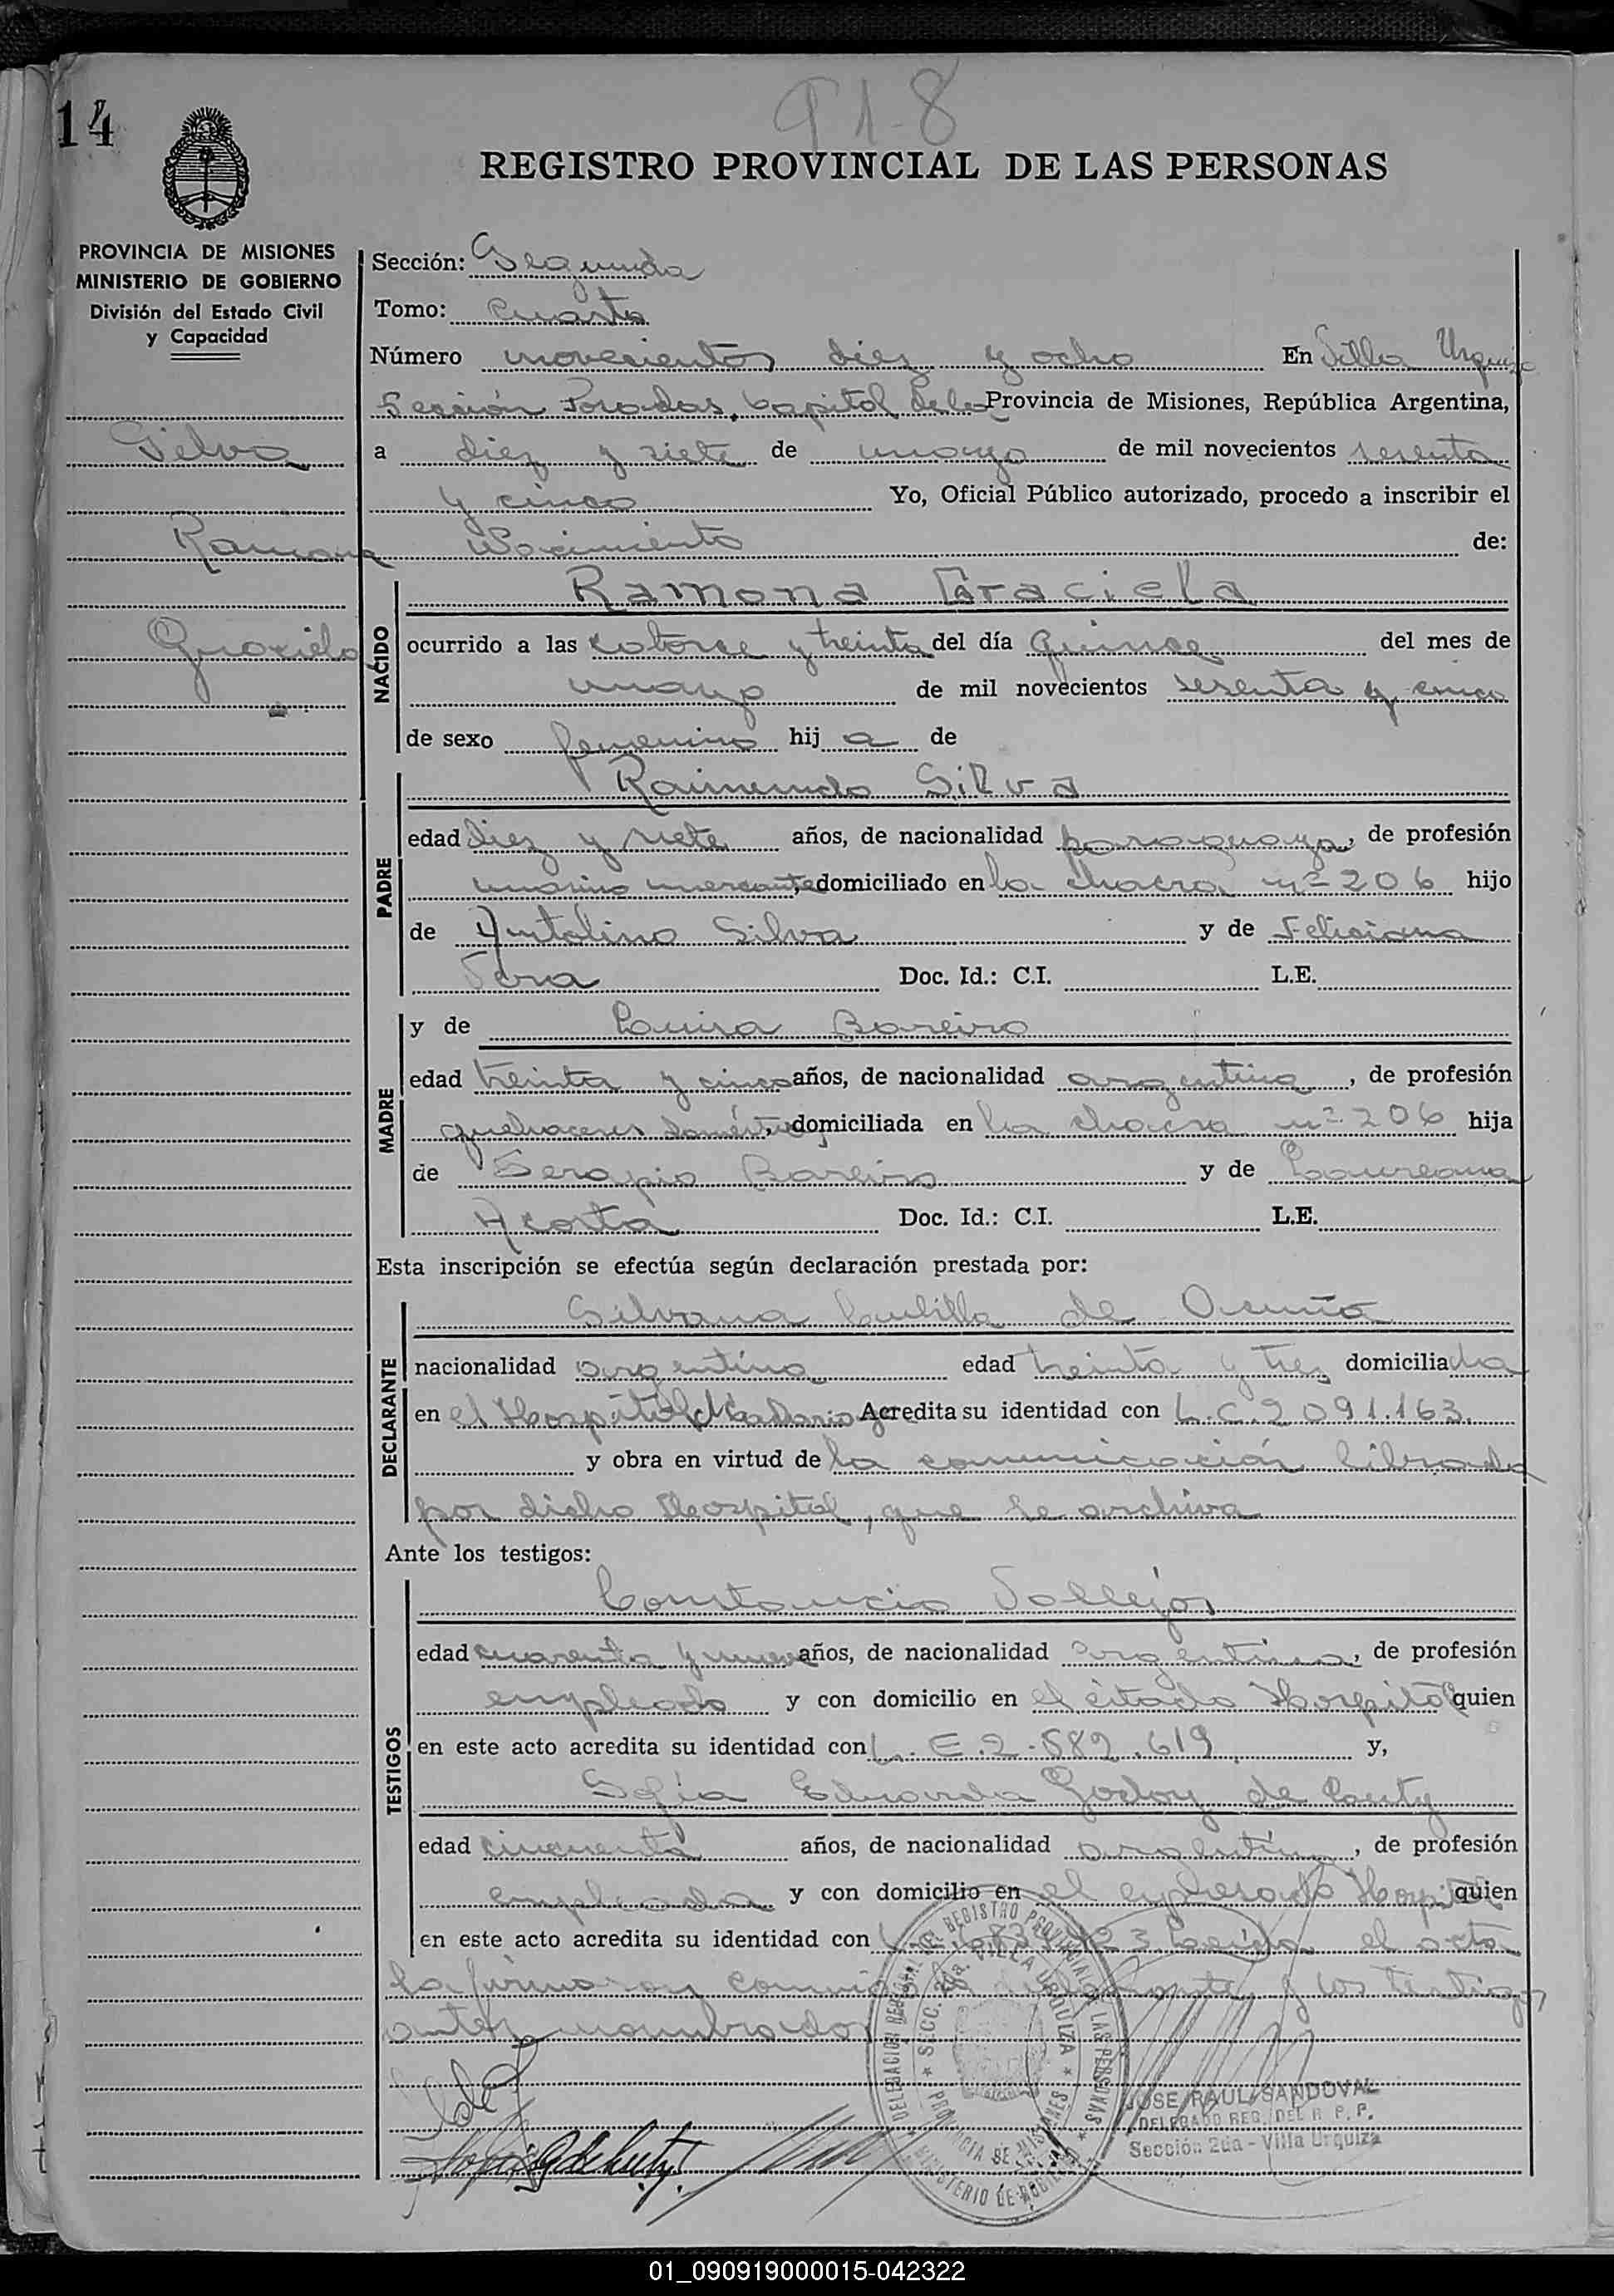 918
14
REGISTRO PROVINCIAL DE LAS PERSONAS
PROVINCIA DE MISIONES
MINISTERIO DE GOBIERNO
División del Estado Civil
y Capacidad
Silva
Ramona
Graciela
Sección: Segunda
Tomo: Cuarto
Número novecientos diez y ocho En Villa Urquiza
Sección Posadas, Capital de la Provincia de Misiones, República Argentina,
a diez y siete de mayo de mil novecientos sesenta
y cinco Yo, Oficial Público autorizado, procedo a inscribir el
Nacimiento de:
NACIDO
Ramona Graciela
ocurrido a las catorce y treinta del día quince del mes de
mayo de mil novecientos sesenta y cinco
de sexo femenino hija de
PADRE
Raimundo Silva
edad diez y siete años, de nacionalidad paraguaya, de profesión
marino mercante, domiciliado en la chacra nº 206 hijo
de Antolino Silva y de Feliciana
Vera Doc. Id.: C.I. L.E.
MADRE
y de Luisa Bareiro
edad treinta y cinco años, de nacionalidad argentina, de profesión
quehaceres domésticos, domiciliada en la chacra nº 206 hija
de Serapio Bareiro y de Laureana
Acosta Doc. Id.: C.I. L.E.
Esta inscripción se efectúa según declaración prestada por:
DECLARANTE
Silvana de Acuña
nacionalidad argentina edad treinta y tres domiciliada
en el Hospital Madariaga Acredita su identidad con L.C. 2.091.163.
y obra en virtud de la comunicación librada
por dicho Hospital, que se archiva
Ante los testigos:
TESTIGOS
Constancio Vallejos
edad cuarenta y nueve años, de nacionalidad argentina, de profesión
empleado y con domicilio en el citado Hospital quien
en este acto acredita su identidad con L.E. 2.582.619 y,
Sofía Eduarda Godoy de
edad cincuenta años, de nacionalidad argentina, de profesión
empleada y con domicilio en el expresado Hospital quien
en este acto acredita su identidad con Leída el acta
la firman conmigo el declarante y los testigos
antes nombrados
DELEGACION REGISTRO PROVINCIAL DE LAS PERSONAS
SECC. 2da. VILLA URQUIZA
PROVINCIA DE MISIONES
MINISTERIO DE GOBIERNO
JOSE RAUL SANDOVAL
DELEGADO REG. DEL R. P. P.
Sección 2da - Villa Urquiza
01_090919000015-042322